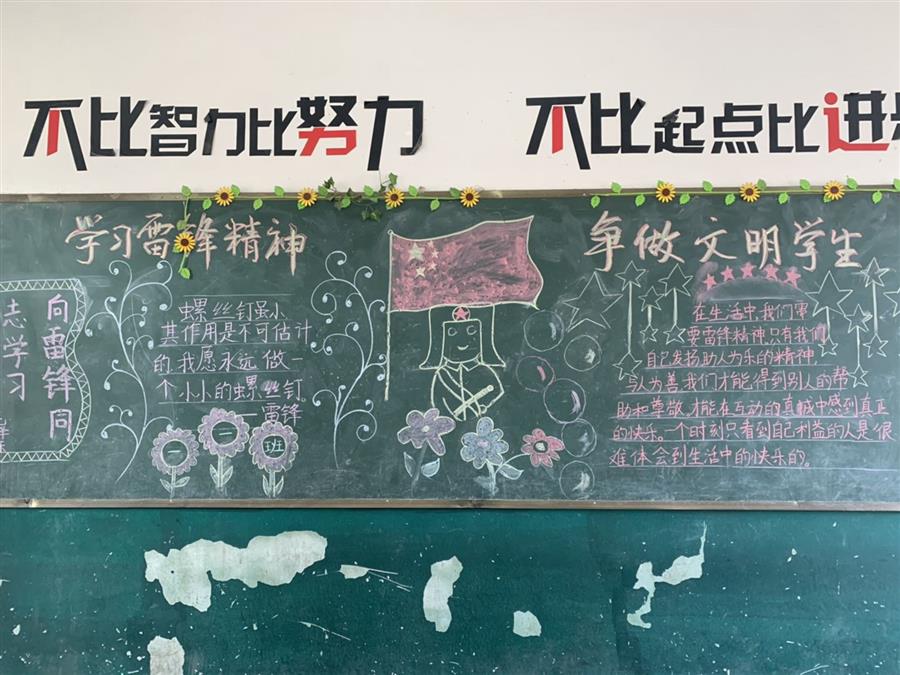 不比智力比努力
不比起点比进
学习雷锋精神
争做文明学生
向雷锋同
志学习
螺丝钉虽小
其作用是不可估计
的我愿永远做一
个小小的螺丝钉
——雷锋
一一班
在生活中,我们需
要雷锋精神,只有我们
自己发扬助人为乐的精神
与人为善,我们才能,得到别人的帮
助和尊敬,才能在互动的真诚中感到真正
的快乐。一个时刻只看到自己利益的人是很
难体会到生活中的快乐的。